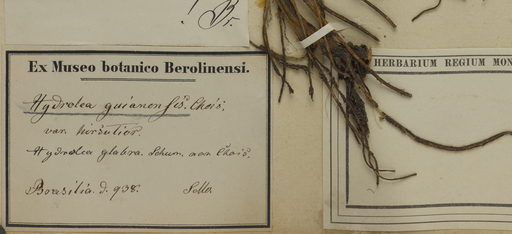 ! Br.
Ex Museo botanico Berolinensi.
HERBARIUM REGIUM MON
Hydrolea guianensis. Chois.
var. hirsutior
Hydrolea glabra. Schum. non Chois.
Brasilia. d. 938. Sello